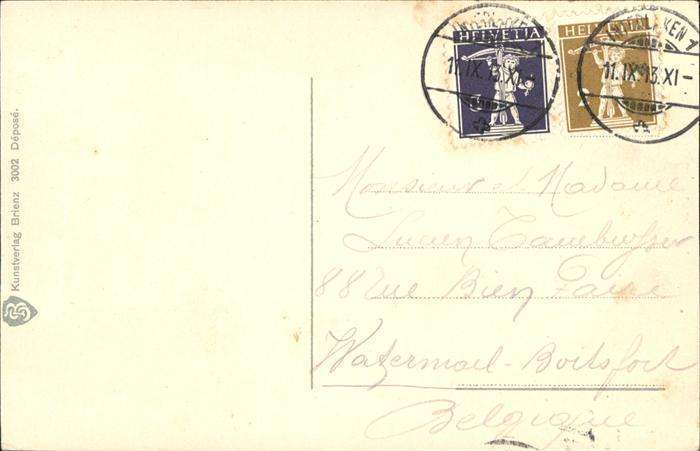 HELVETIA
HELVETIA
INTERLAKEN
11.IX.13.XI-
INTERLAKEN 1
11.IX.13.XI-
Kunstverlag Brienz 3002 Déposé.
Monsieur et Madame
Lucien
88 rue Bien Faire
Watermael-Boitsfort
Belgique